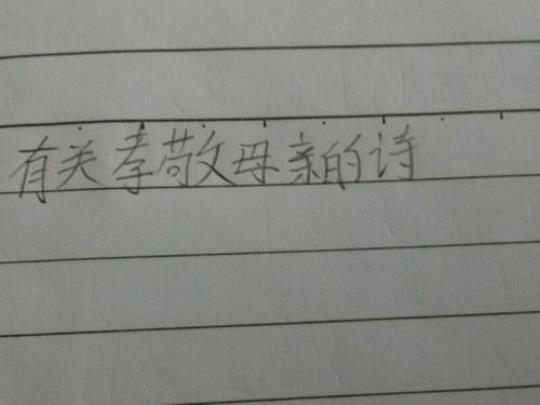 有关孝敬母亲的诗